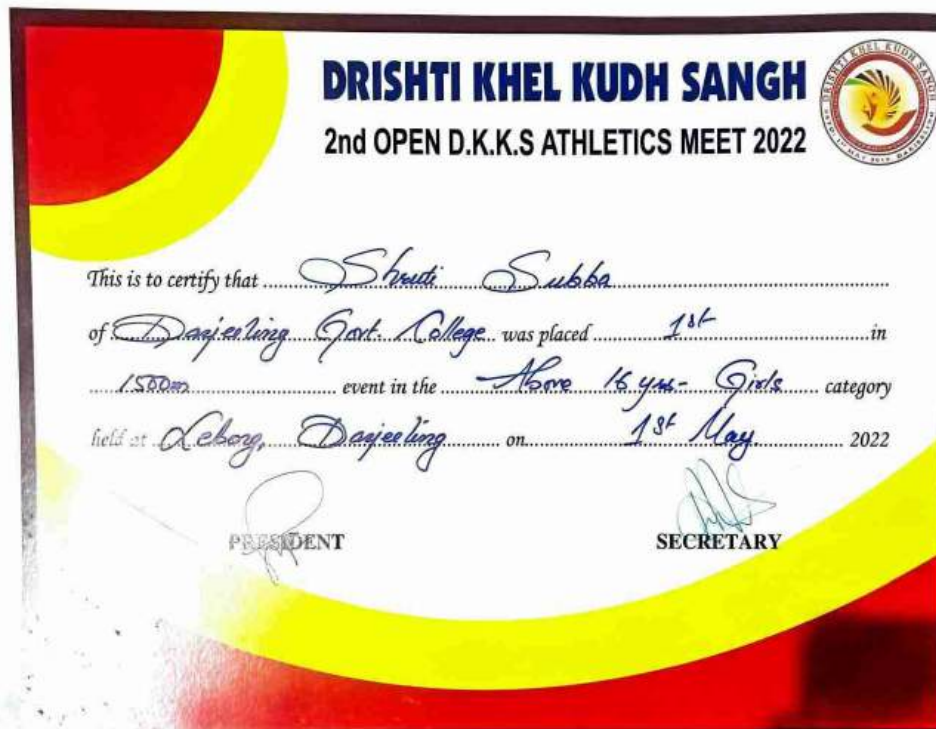 DRISHTI KHEL KUDH SANGH
2nd OPEN D.K.K.S ATHLETICS MEET 2022
DRISHTI KHEL KUDH SANGH
This is to certify that Shruti Subba
of Darjeeling Govt. College was placed 1st in
1500m event in the Above 16 yrs- Girls category
held at Lebong, Darjeeling on 1st May 2022
PRESIDENT SECRETARY